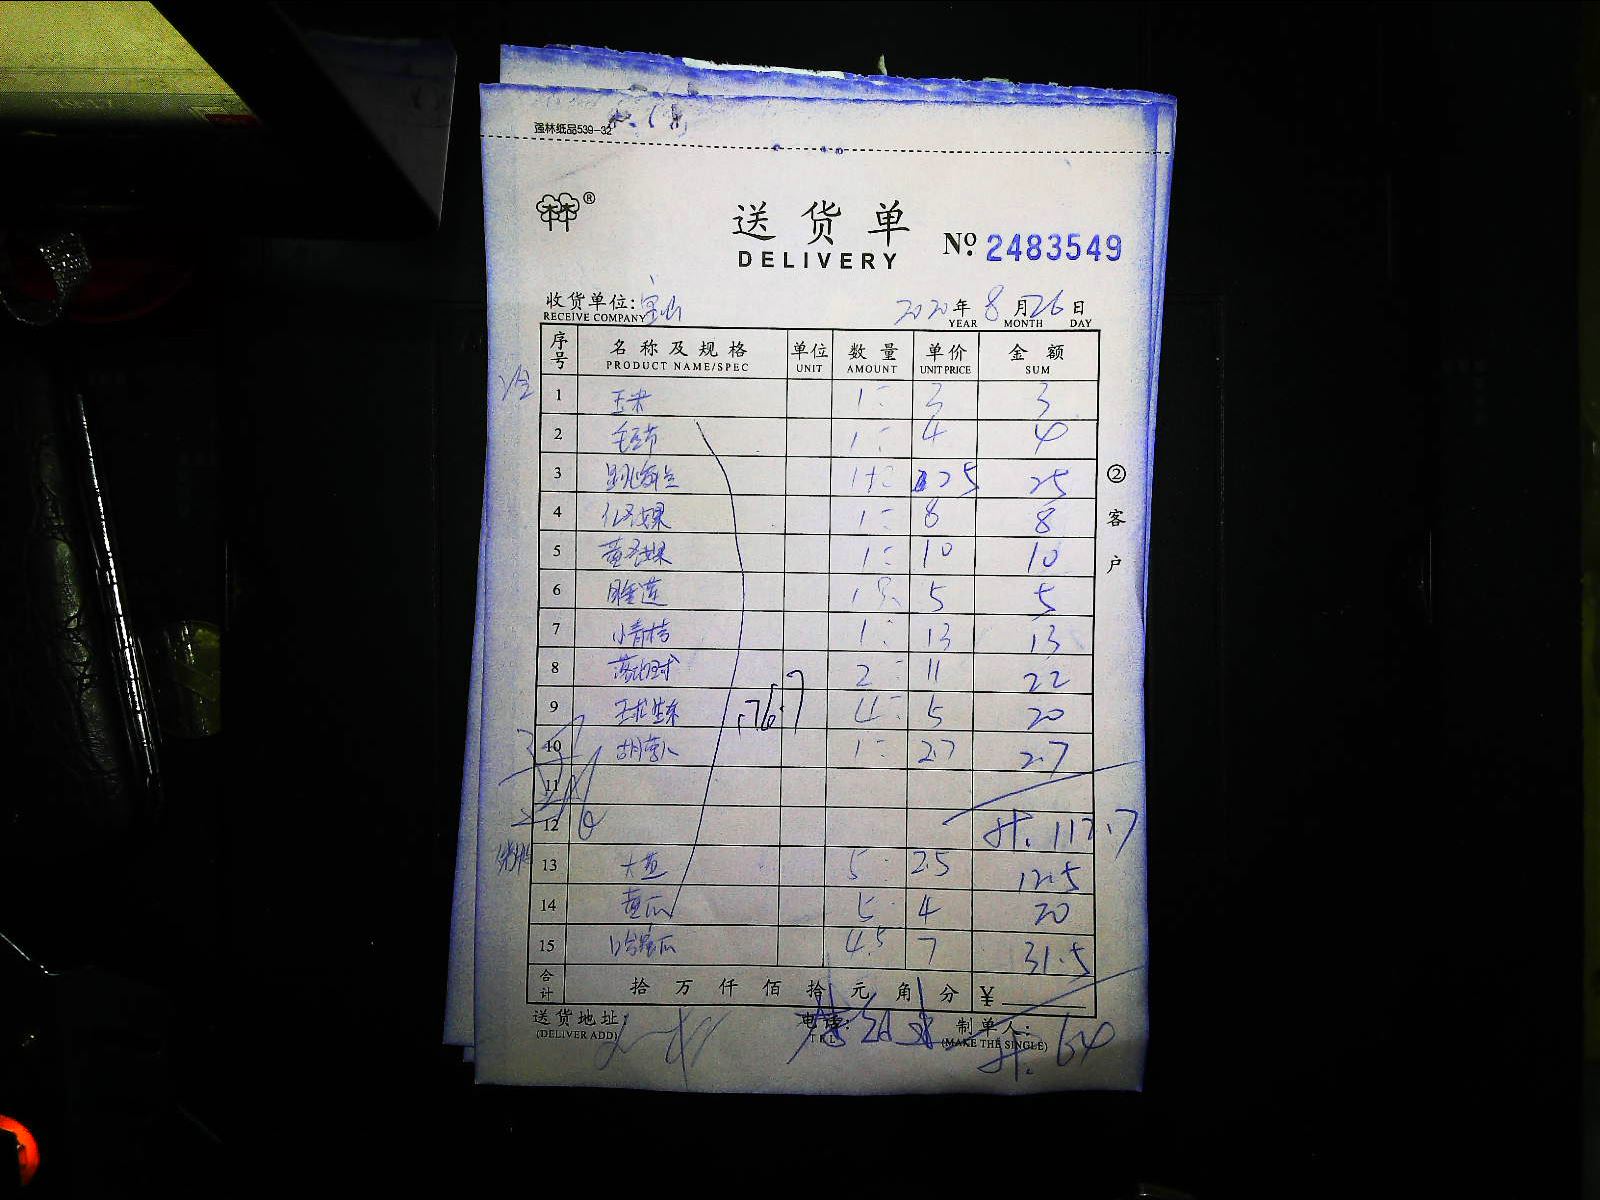 强林纸品539-32
林®
送货单
DELIVERY
№ 2483549
收货单位: 宝山 2020年8月26日
RECEIVE COMPANY YEAR MONTH DAY
序号 名称及规格 单位 数量 单价 金额
PRODUCT NAME/SPEC UNIT AMOUNT UNIT PRICE SUM
1 玉米 1 3 3
2 毛豆节 1 4 4
3 1 25 25
4 1 8 8
5 1 10 10
6 睡莲 1 5 5
7 小青桔 1 13 13
8 2 11 22
9 4 5 20
176.7
10 胡萝卜 1 2.7 2.7
11
12 计. 112.7
13 大葱 5 2.5 12.5
14 黄瓜 5 4 20
15 哈密瓜 4.5 7 31.5
合计 拾万仟佰拾元角分 ¥
送货地址: 电话: 制单人:
(DELIVER ADD) TEL (MAKE THE SINGLE)
计. 64
②客户